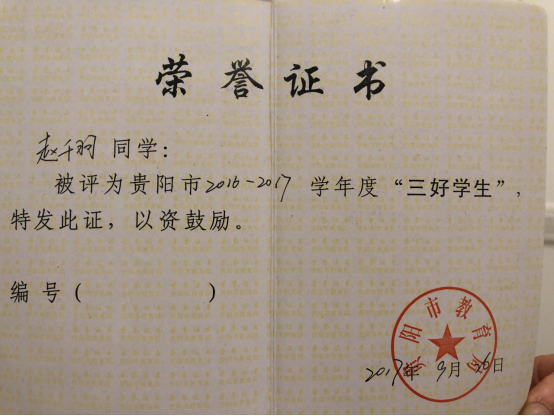 荣誉证书
赵千羽 同学：
被评为贵阳市2016-2017 学年度“三好学生”，
特发此证，以资鼓励。
编号（ ）
贵阳市教育局
2017年9月26日